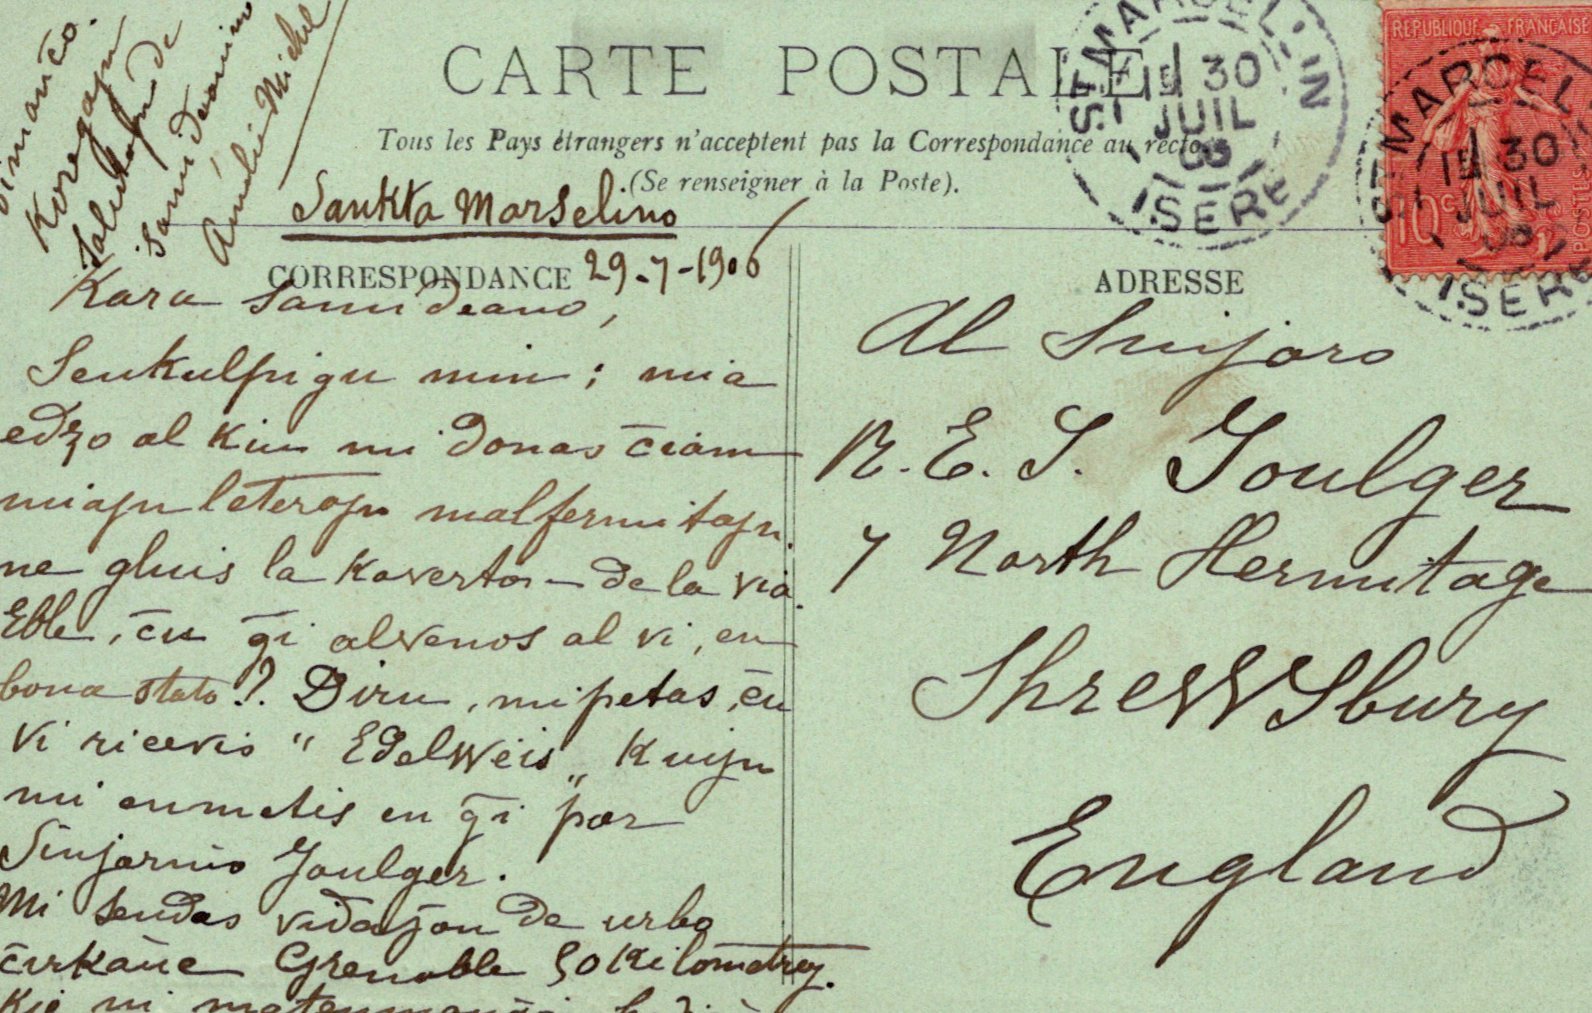 CARTE POSTALE
Tous les Pays étrangers n'acceptent pas la Correspondance au recto
(Se renseigner à la Poste).
ST MARCELLIN
1E 30
JUIL
06
ISERE
REPUBLIQUE FRANÇAISE
10c
POSTES
ST MARCELLIN
1E 30
JUIL
06
ISERE
dimanĉo.
Koregajn
salutojn de
samideanino
Amélie Michel
Sankta Marselino
29-7-1906
CORRESPONDANCE
Kara samideano,
Senkulpigu min; mia
edzo al kiu mi donas ĉiam
miajn leterojn malfermitajn
ne gluis la koverton de la via.
Eble, ĉu ĝi alvenos al vi, en
bona stato!? Diru, mi petas, ĉu
vi ricevis "Edelweïs„ kuijn
mi enmetis en ĝi por
Sinjorino Goulger.
Mi sendas vidaĵon de urbo
ĉirkaŭe Grenoble 50 kilometroj.
Kie ni
ADRESSE
Al Sinjoro
R. E. S. Goulger
7 North Hermitage
Shrewsbury
England